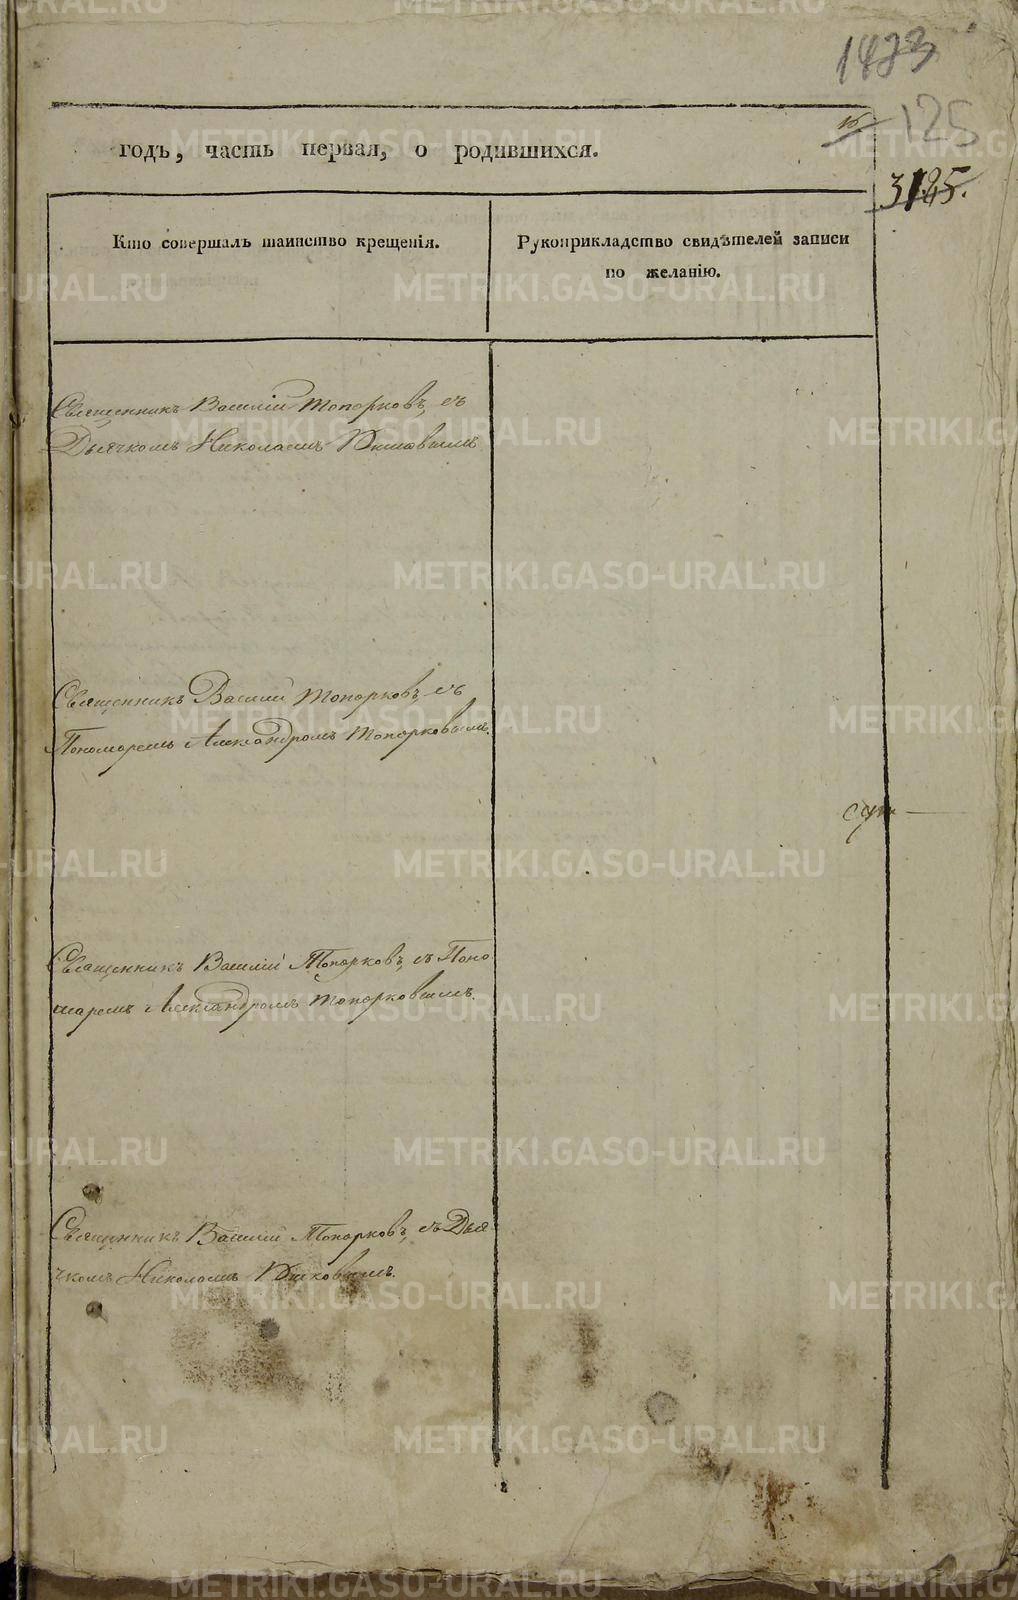 1423
125
16
3125.
годъ, часть первая, о родившихся.
Кто совершалъ таинство крещенія.
Рукоприкладство свидѣтелей записи
по желанію.
Священникъ Василій Топорковъ, съ
Дьячкомъ Николаемъ
Священникъ Василій Топорковъ, съ
Пономаремъ Александромъ Топорковымъ.
Священникъ Василій Топорковъ, съ Поно
маремъ Александромъ Топорковымъ.
Священникъ Василій Топорковъ, съ Дья
чкомъ Николаемъ
METRIKI.GASO-URAL.RU